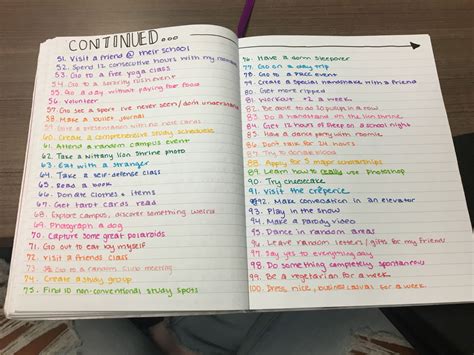 CONTINUED...
51. Visit a friend @ their school
52. Spend 12 consecutive hours with my roommate
53. Go to a free yoga class
54. Go to a sorority rush event
55. Go a day without paying for food
56. Volunteer
57. Go see a sport ive never seen/dont understand
58. Make a bullet journal
59. Give a presentation with no note cards
60. Create a comprehensive study schedule
61. Attend a random campus event
62. Take a Nittany lion shrine photo
63. Eat with a stranger
64. Take a self-defense class
65. Read a book
66. Donate clothes + items
67. Get tarot cards read
68. Explore campus, discover something weird
69. Photograph a dog
70. Capture some great polaroids
71. Go out to eat by myself
72. Visit a friends class
73. Go to a random club meeting
74. Create a study group
75. Find 10 non-conventional study spots
76. Have a dorm sleepover
77. Go on a day trip
78. Go to a free event
79. Create a special handshake with a friend
80. Get more ripped
81. Workout +2 a week
82. Be able to do 30 pullups in a row
83. Do a handstand on the lion shrine
84. Get 12 hours of sleep on a school night
85. Have a dance party with roomies
86. Dont talk for 24 hours
87. Try to donate blood
88. Apply for 5 major scholarships
89. Learn how to really use photoshop
90. Try cheesecake
91. Visit the crêperie
92. Make conversation in an elevator
93. Play in the snow
94. Make a parody video
95. Dance in random areas
96. Leave random letters/gifts for my friends
97. Say yes to everything day
98. Do something completely spontaneous
99. Be a vegetarian for a week
100. Dress nice, business casual for a week